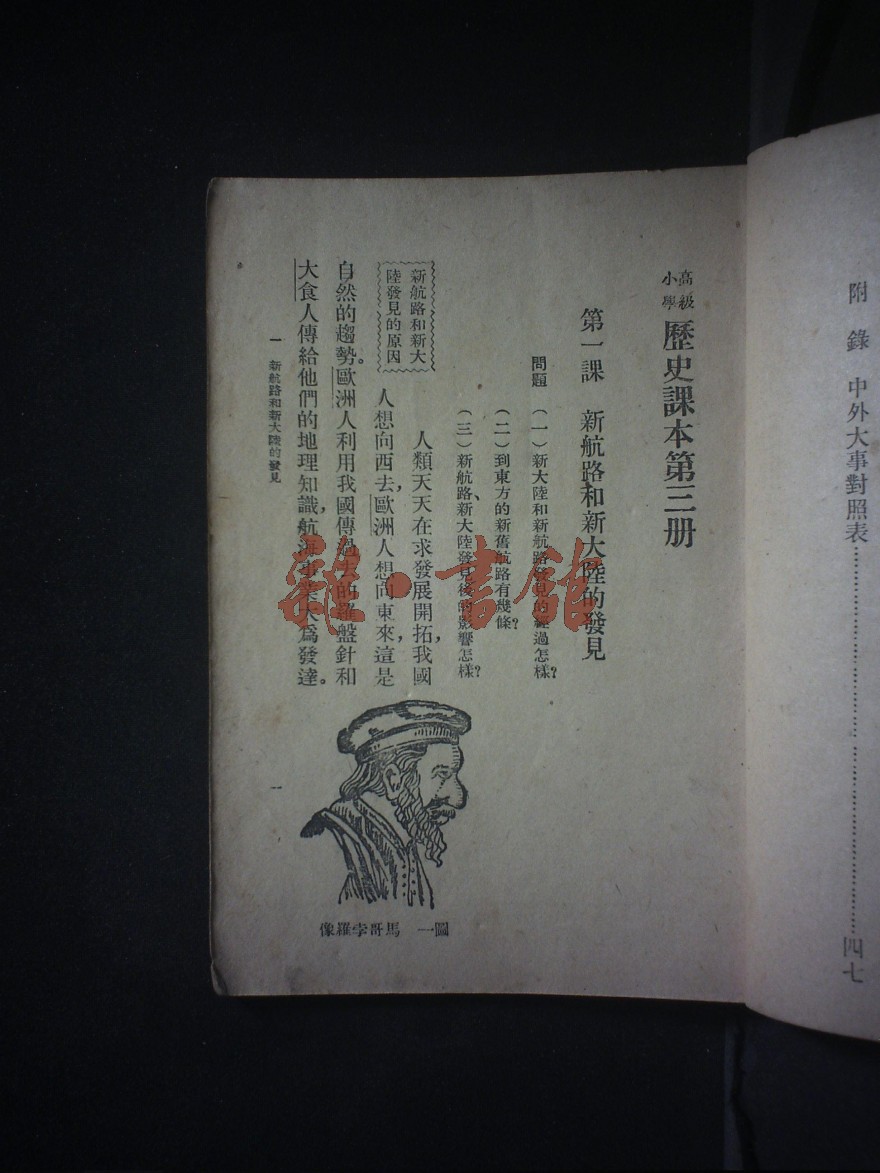 附錄 中外大事對照表……………………四七
高級小學 歷史課本第三册
第一課 新航路和新大陸的發見
問題 (一)新大陸和新航路發見的經過怎樣?
(二)到東方的新舊航路有幾條?
(三)新航路、新大陸發見後的影響怎樣?
新航路和新大
陸發見的原因
人類天天在求發展開拓,我國
人想向西去,歐洲人想向東來,這是
自然的趨勢。歐洲人利用我國傳過去的羅盤針和
大食人傳給他們的地理知識,航海事業大爲發達。
圖一 馬哥孛羅像
一 新航路和新大陸的發見
一
雜·書館